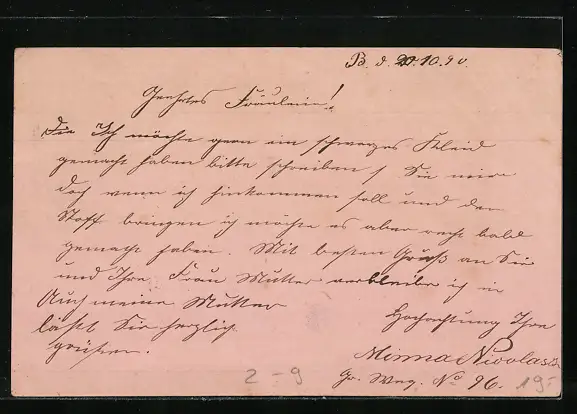 B. d. 20.10.90.
Geehrtes Fräulein!
Ich möchte gern ein schwarzes Kleid
gemacht haben bitte schreiben Sie mir
doch wenn ich hinkommen soll und den
Stoff bringen ich möchte es aber recht bald
gemacht haben. Mit besten Gruß an Sie
und Ihre Frau Mutter verbleibe ich in
Hochachtung Ihre
Minna Nicolassen
Gr. Weg. No 96.
Auch meine Mutter
läßt Sie herzlich
grüßen.
2-9
19-